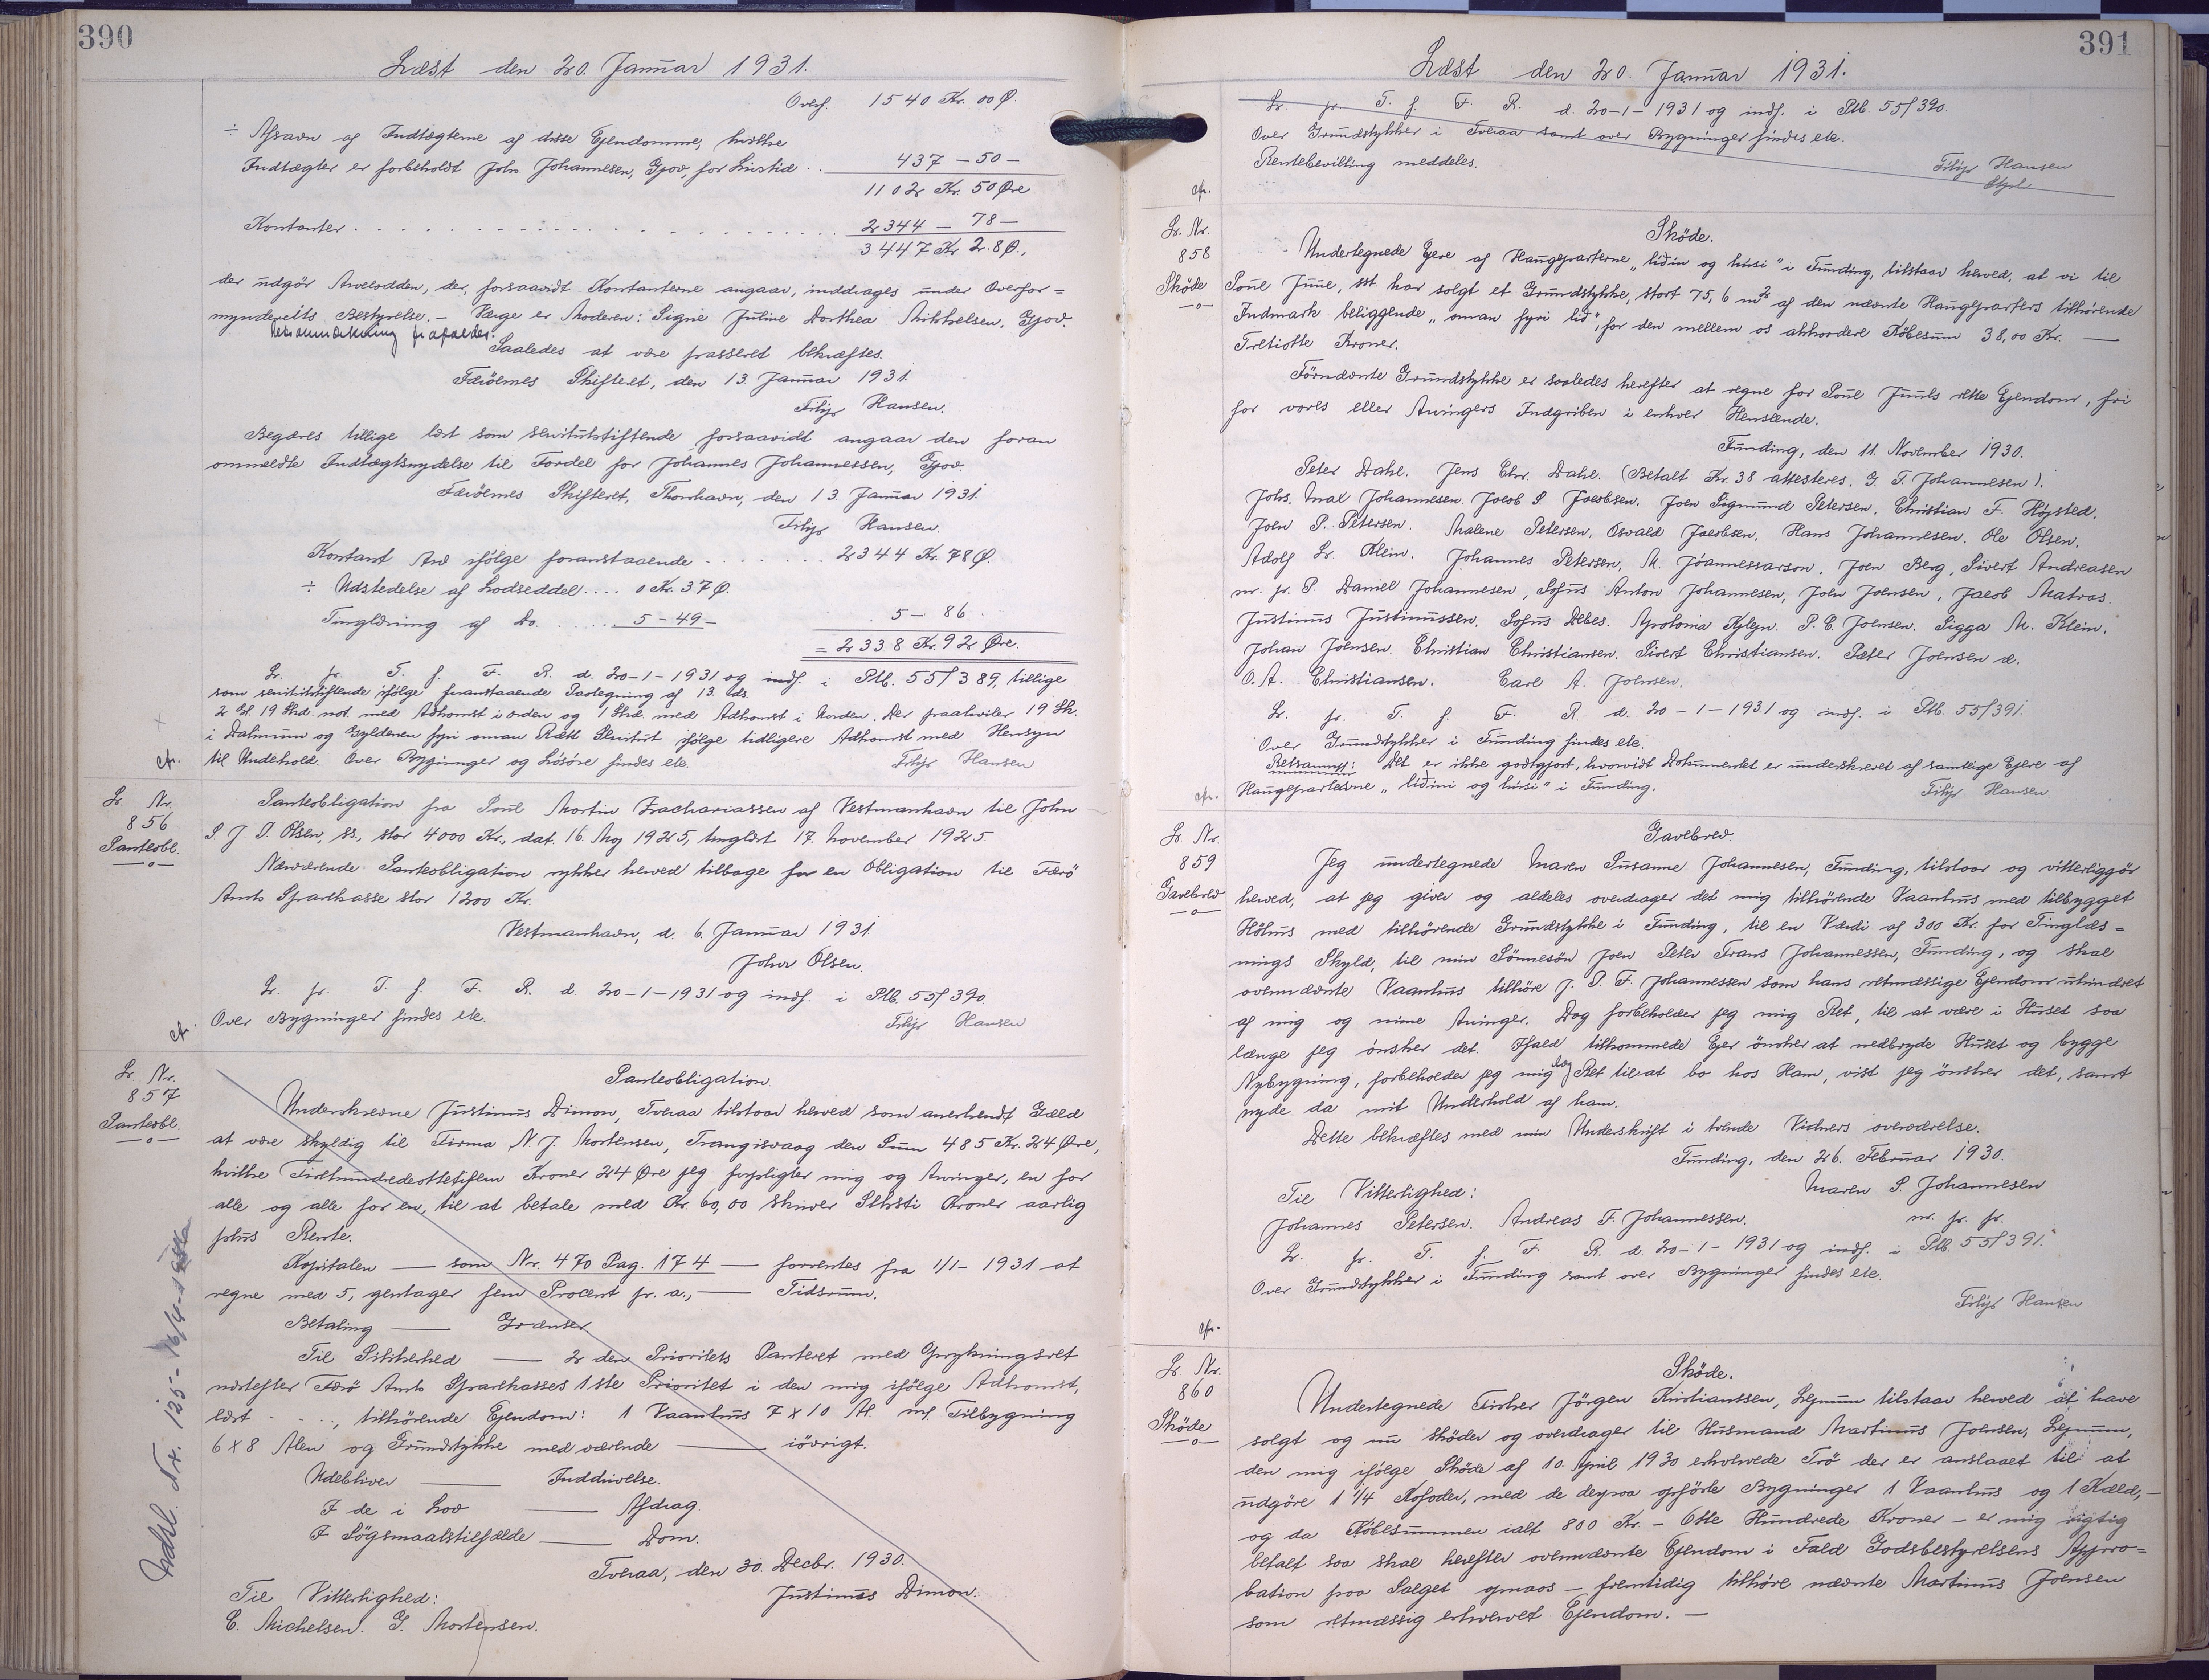 390
Læst den 20. Januar 1931.
Overf. 1540 Kr. 00 Ø.
÷ Afsavn af Indtægterne af disse Ejendomme, hvilke
Indtægter er forbeholdt Johs Johannesen, Gjov, for Livstid . . 437 – 50 –
1102 Kr. 50 Øre
Kontanter . . . . . . . . . . . . . . 2344 – 78 –
3447 Kr. 28 Ø.,
der udgör Arvelodden, der, forsaavidt Kontanterne angaar, inddrages under Overfor=
mynderiets Bestyrelse. – Værge er Moderen: Signe Juline Dorthea Mikkelsen, Gjov.
Retsanmærkning frafalder.
Saaledes at være passeret bekræftes.
Færöernes Skifteret, den 13. Januar 1931.
Filip Hansen.
Begæres tillige læst som servitutstiftende forsaavidt angaar den foran
ommeldte Indtægtsnydelse til Fordel for Johannes Johannessen, Gjov.
Færöernes Skifteret, Thorshavn, den 13. Januar 1931.
Filip Hansen.
Kontant Arv ifølge foranstaaende . . . . . . . . 2344 Kr. 78 Ø.
÷ Udstedelse af Lodseddel . . . . 0 Kr. 37 Ø.
Tinglæsning af Do. . . . . . 5 – 49 – 5 – 86 .
= 2338 Kr. 92 Øre.
Lr. pr. T. f. F. R. d. 20-1-1931 og indf. i Ptb. 55/389, tillige
som servitutstiftende ifølge foranstaaende Paategning af 13. ds.
2 Gl. 19 Skd. not. med Adkomst i orden og 1 Skd. med Adkomst i Uorden. Der paahviler 19 Sk.
i Dalinum og Gyldenen fyri oman Rætt Servitut ifølge tidligere Adkomst med Hensyn
til Underhold. Over Bygninger og Lösöre findes etc. Filip Hansen
cfr.
Lr. Nr.
856
Panteobl.
Panteobligation fra Poul Mortin Zachariassen af Vestmanhavn til John
P. J. D. Olsen, ss., stor 4000 Kr., dat. 16. Maj 1925, tinglæst 17. November 1925.
Nærværende Panteobligation rykker herved tilbage for en Obligation til Færö
Amts Sparekasse stor 1200 Kr.
Vestmanhavn, d. 6. Januar 1931.
John Olsen.
Lr. pr. T. f. F. R. d. 20-1-1931 og indf. i Ptb. 55/390.
Over Bygninger findes etc. Filip Hansen
cfr.
Lr. Nr.
857
Panteobl.
Panteobligation.
Underskrevne Justinus Dimon, Tveraa tilstaar herved som anerkendt Gæld
at være skyldig til Firma N. J. Mortensen, Trangisvaag den Sum 485 Kr. 24 Øre,
hvilke Firehundredeottetifem Kroner 24 Øre jeg forpligter mig og Arvinger, en for
alle og alle for en, til at betale med Kr. 60,00 skriver Seksti Kroner aarlig
plus Rente.
Kapitalen — som Nr. 470 Pag. 174 — forrentes fra 1/1- 1931 at
regne med 5, gentager fem Procent pr. a., — Tidsrum.
Betaling — Grænser
Til Sikkerhed — 2 den Prioritets Panteret med Oprykningsret
næstefter Færö Amts Sparekasses 1ste Prioritet i den mig ifölge Adkomst,
læst - - -, tilhörende Ejendom: 1 Vaanhus 7 x 10 Al. m/ Tilbygning
6 x 8 Alen og Grundstykke med værende — iövrigt.
Udebliver — Inddrivelse.
I de i Lov — Afdrag.
I Sögsmaalstilfælde — Dom.
Tveraa, den 30. Decbr. 1930.
Til Vitterlighed: Justinus Dimon.
C. Michelsen. G. Mortensen.
391
Læst den 20. Januar 1931.
Lr. pr. T. f. F. R. d. 20-1-1931 og indf. i Ptb. 55/390.
Over Grundstykker i Tveraa samt over Bygninger findes etc.
Rentebevilling meddeles. Filip Hansen
cfr.
Lr. Nr.
858
Sköde
Sköde.
Undertegnede Ejere af Haugeparterne "liðin og húsi" i Funding, tilstaar herved, at vi til
Poul Juul, sst. har solgt et Grundstykke, stort 75,6 m² af den nævnte Haugeparters tilhörende
Indmark beliggende "oman fyri lið", for den mellem os akkordere Köbesum 38,00 Kr. —
Tretiotte Kroner.
Förnævnte Grundstykke er saaledes herefter at regne for Poul Juuls rette Ejendom, fri
for vores eller Arvingers Indgriben i enhver Henseende.
Funding, den 11. November 1930.
Peter Dahl. Jens Chr. Dahl. (Betalt Kr. 38 attesteres. G. T. Johannesen).
Johs. Max Johannesen. Jacob S. Jacobsen. Joen Sigmund Petersen. Christian F. Højsted.
Joen P. Petersen. Malene Petersen. Osvald Jacobsen. Hans Johannesen. Ole Olsen.
Adolf Lr. Klein. Johannes Petersen, M. Jóannessarson. Joen Berg, Sivert Andreasen
m. p. P. Daniel Johannesen, Sofus Anton Johannesen, John Joensen, Jacob Matras.
Justinus Justinussen. Sofus Debes. Apolonia Kylijn. P. C. Joensen. Sigga M. Klein.
Johan Joensen. Christian Christiansen. Sivert Christiansen. Peter Joensen æ.
O. A. Christiansen. Carl A. Joensen.
Lr. pr. T. f. F. R. d. 20-1-1931 og indf. i Ptb. 55/391.
Over Grundstykker i Funding findes etc.
Retsanm: Det er ikke godtgjort, hvorvidt Dokumentet er underskrevet af samtlige Ejere af
Haugeparterne "liðini og húsi" i Funding. Filip Hansen
cfr.
Lr. Nr.
859
Gavebrev
Gavebrev.
Jeg undertegnede Maren Susanne Johannesen, Funding, tilstaar og vitterliggör
herved, at jeg giver og aldeles overdrager det mig tilhörende Vaanhus med tilbygget
Höhus med tilhörende Grundstykke i Funding, til en Værdi af 300 Kr. for Tinglæs=
nings Skyld, til min Sönnesön Joen Peter Frans Johannessen, Funding, og skal
ovennævnte Vaanhus tilhöre J. P. F. Johannessen som hans retmæssige Ejendom uhindret
af mig og mine Arvinger. Dog forbeholder jeg mig Ret, til at være i Huset saa
længe jeg önsker det. Ifald tilkommede Ejer önsker at nedbryde Huset og bygge
Nybygning, forbeholder jeg mig dog Ret til at bo hos Ham, vist jeg önsker det, samt
nyde da mit Underhold af ham.
Dette bekræftes med min Underskrift i tvende Vidners overværelse.
Funding, den 26. Februar 1930.
Til Vitterlighed: Maren S. Johannesen
Johannes Petersen. Andreas F. Johannessen. m. p. p.
Lr. pr. T. f. F. R. d. 20-1-1931 og indf. i Ptb. 55/391.
Over Grundstykker i Funding samt over Bygninger findes etc.
Filip Hansen
cfr.
Lr. Nr.
860
Sköde
Sköde.
Undertegnede Fisker Jörgen Kristianssen, Lejnum tilstaar herved at have
solgt og nu sköder og overdrager til Husmand Martinus Joensen, Lejnum,
den mig ifölge Sköde af 10. April 1930 erhvervede Trö der er anslaaet til at
udgöre 1 1/4 Kofoder, med de derpaa opförte Bygninger 1 Vaanhus og 1 Kæld,—
og da Köbesummen ialt 800 Kr. – Otte Hundrede Kroner – er mig rigtig
betalt saa skal herefter ovennævnte Ejendom i Fald Godsbestyrelsens Appro=
bation paa Salget opnaas – fremtidig tilhöre nævnte Martinus Joensen
som retmæssig erhvervet Ejendom. —